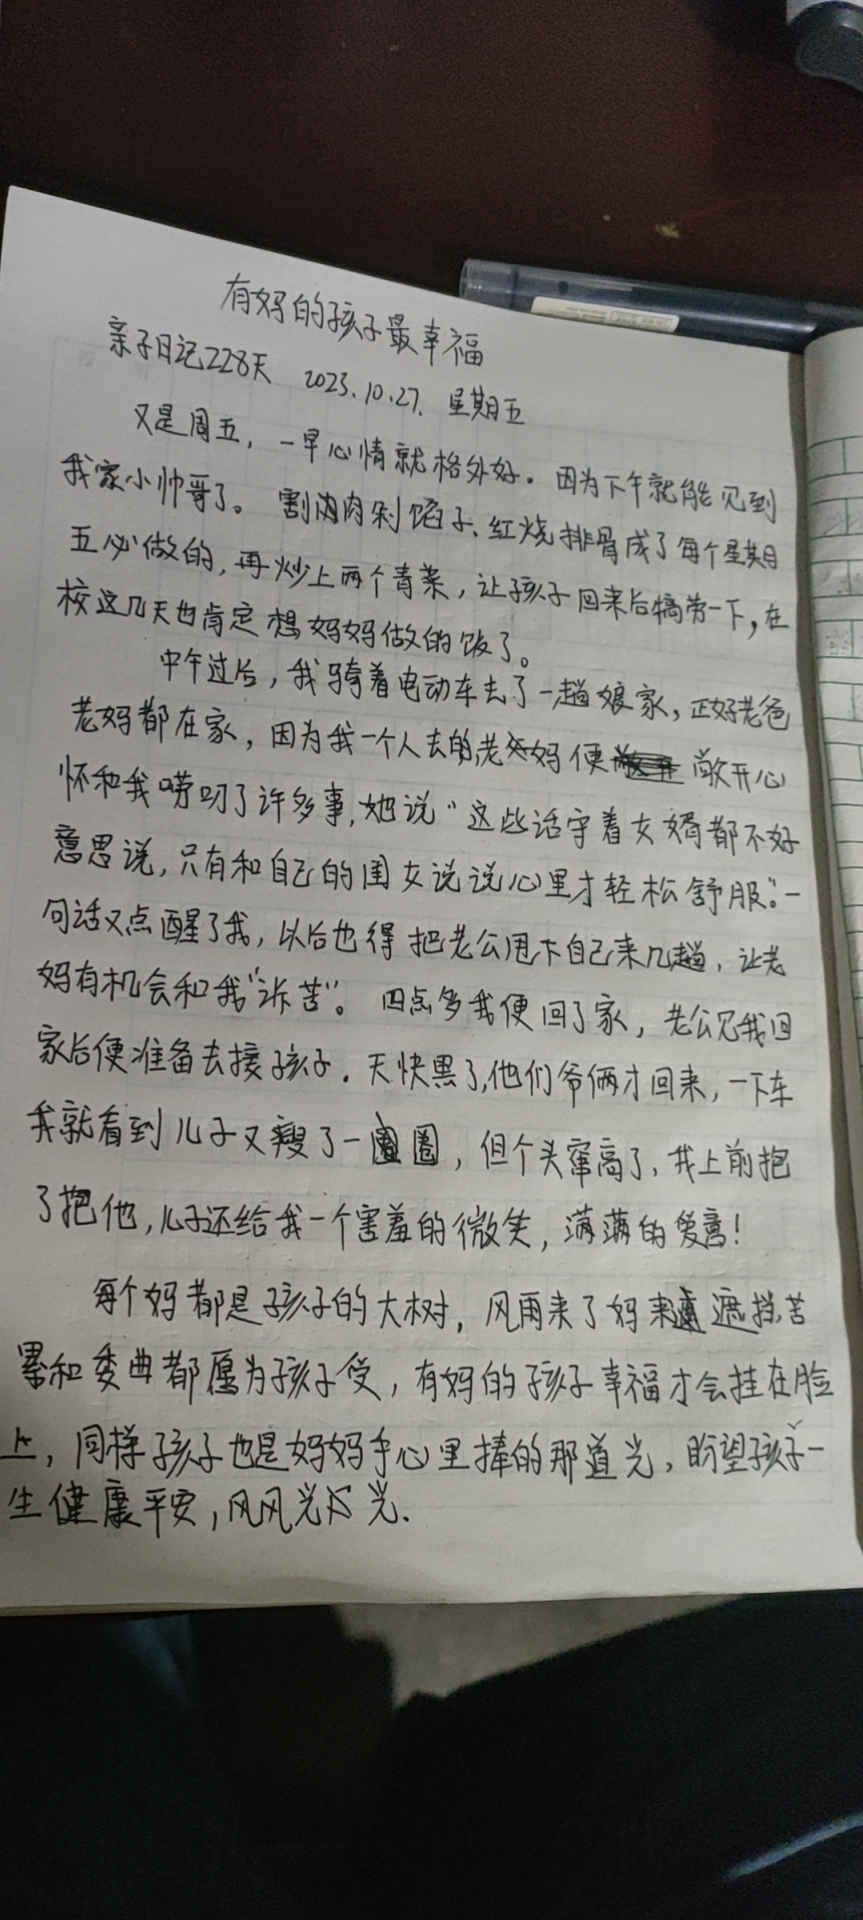 有妈的孩子最幸福
亲子日记228天 2023.10.27. 星期五
又是周五，一早心情就格外好。因为下午就能见到
我家小帅哥了。割肉剁馅子、红烧排骨成了每个星期
五必做的，再炒上两个青菜，让孩子回来后犒劳一下，在
校这几天也肯定想妈妈做的饭了。
中午过后，我骑着电动车去了一趟娘家，正好老爸
老妈都在家，因为我一个人去的老妈便敞开心
怀和我唠叨了许多事，她说“这些话守着女婿都不好
意思说，只有和自己的闺女说说心里才轻松舒服。”一
句话又点醒了我，以后也得把老公甩下自己来几趟，让老
妈有机会和我“诉苦”。四点多我便回了家，老公见我回
家后便准备去接孩子。天快黑了，他们爷俩才回来，一下车
我就看到儿子又瘦了一圈，但个头窜高了，我上前抱
了抱他，儿子还给我一个害羞的微笑，满满的爱意！
每个妈都是孩子的大树，风雨来了妈来遮挡，苦
累和委曲都愿为孩子受，有妈的孩子幸福才会挂在脸
上，同样孩子也是妈妈手心里捧的那道光，盼望孩子一
生健康平安，风风光光.